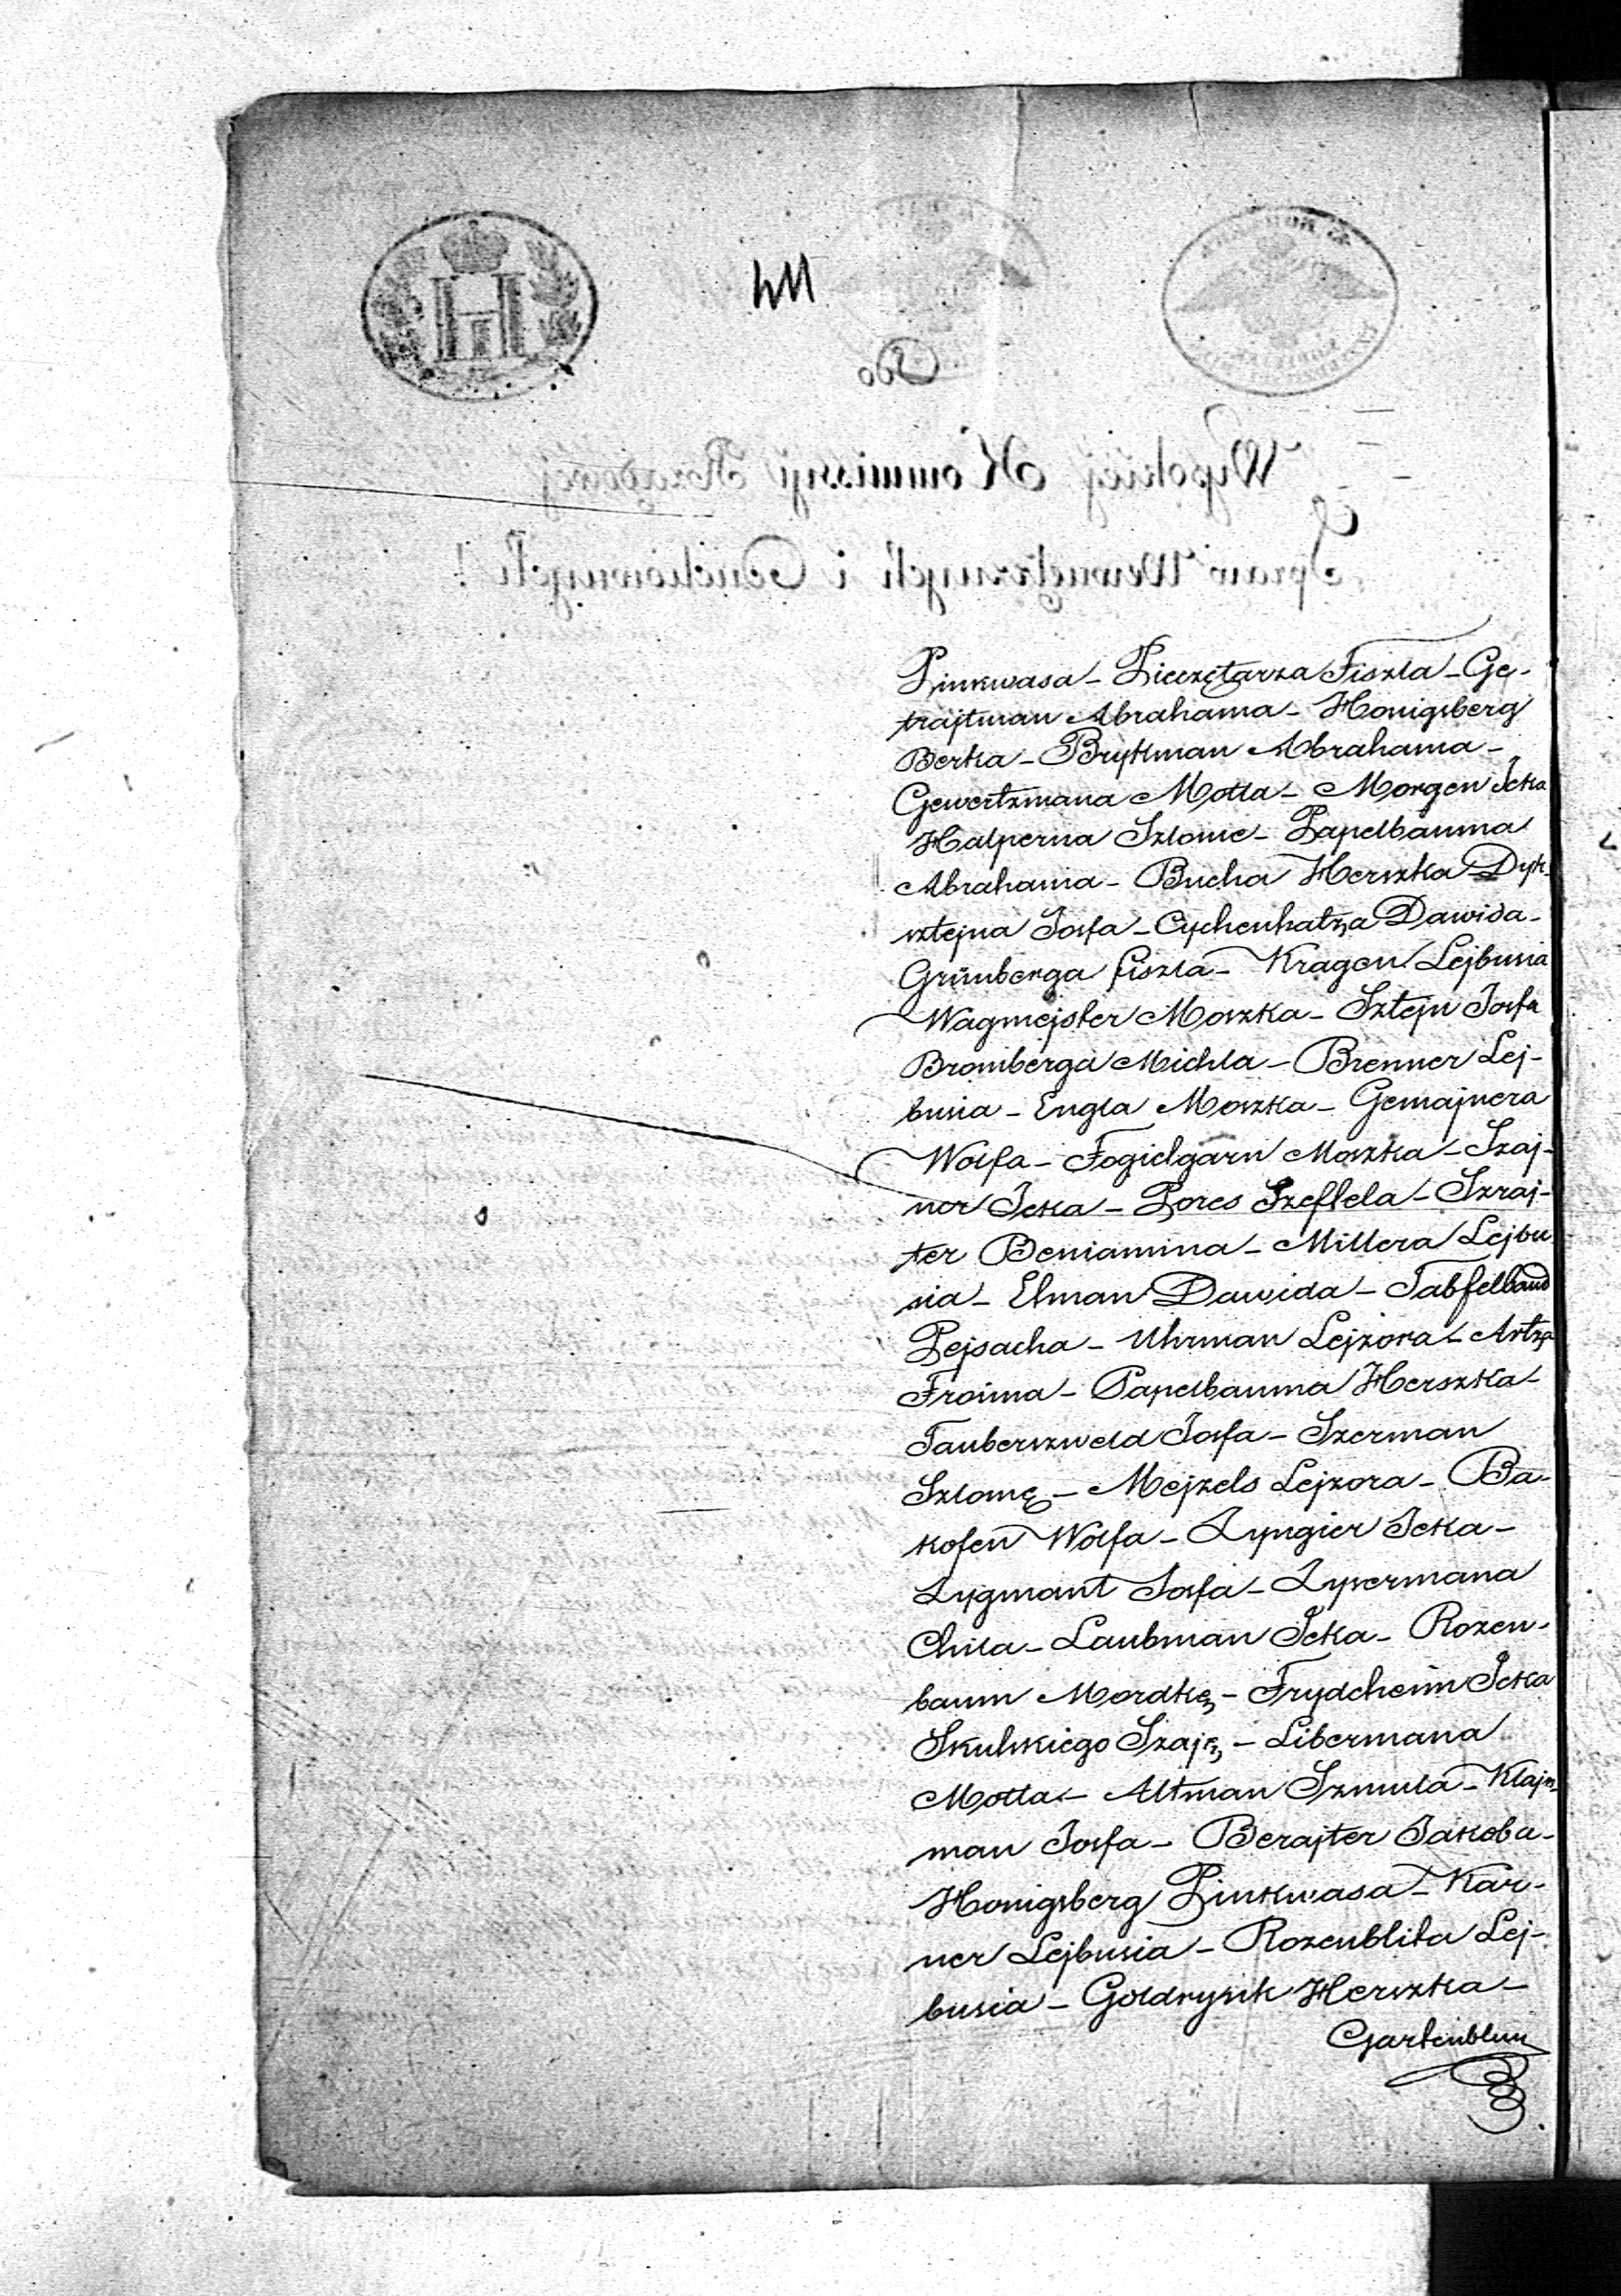 Pinkwasa – Pieczętarza Fiszla – Ge-
trajtman Abrahama – Honigsberg
Berka – Brykman Abrahama –
Gewertzmana Motla – Morgen Icka
Halperna Szlome – Papelbauma
Abrahama – Bucha Herszka Dyk-
sztejna Josfa – Cychenhatza Dawida –
Grünberga fiszla – Kragen Lejbusia
Wagmejster Moszka – Sztejn Josfa
Bromberga Michla – Brenner Lej-
busia – Engla Moszka – Gemajnera
Wolfa – Fogielgarn Moszka – Szaj-
ner Icka – Pores Szeftela – Szraj-
ter Beniamina – Millera Lejbu
sia – Elman Dawida – Tabfelband
Pejsacha – Uhrman Lejzora – Artza
Froima – Papelbauma Herszka –
Tauberszweld Josfa – Szerman
Szlomę – Mejzels Lejzora – Ba-
kofen Wolfa – Zyngier Icka –
Zygmant Josfa – Zylbermana
Chila – Laubman Icka – Rozen-
baum Mordkę – Frydcheim Icka
Skulskiego Szaję – Libermana
Motla – Altman Szmula – Klajn-
man Josfa – Berajter Jakoba –
Honigsberg Pinkwasa – Kar-
ner Lejbusia – Rozenblita Lej-
busia – Goldrysik Herszka –
Gartenblum